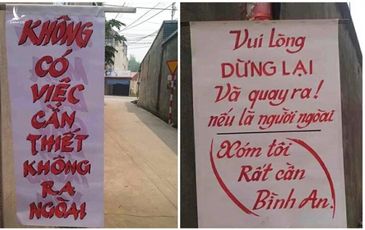 KHÔNG
CÓ
VIỆC
CẦN
THIẾT
KHÔNG
RA
NGOÀI
Vui lòng
DỪNG LẠI
Và quay ra!
nếu là người ngoài
Xóm tôi
Rất cần
Bình An.